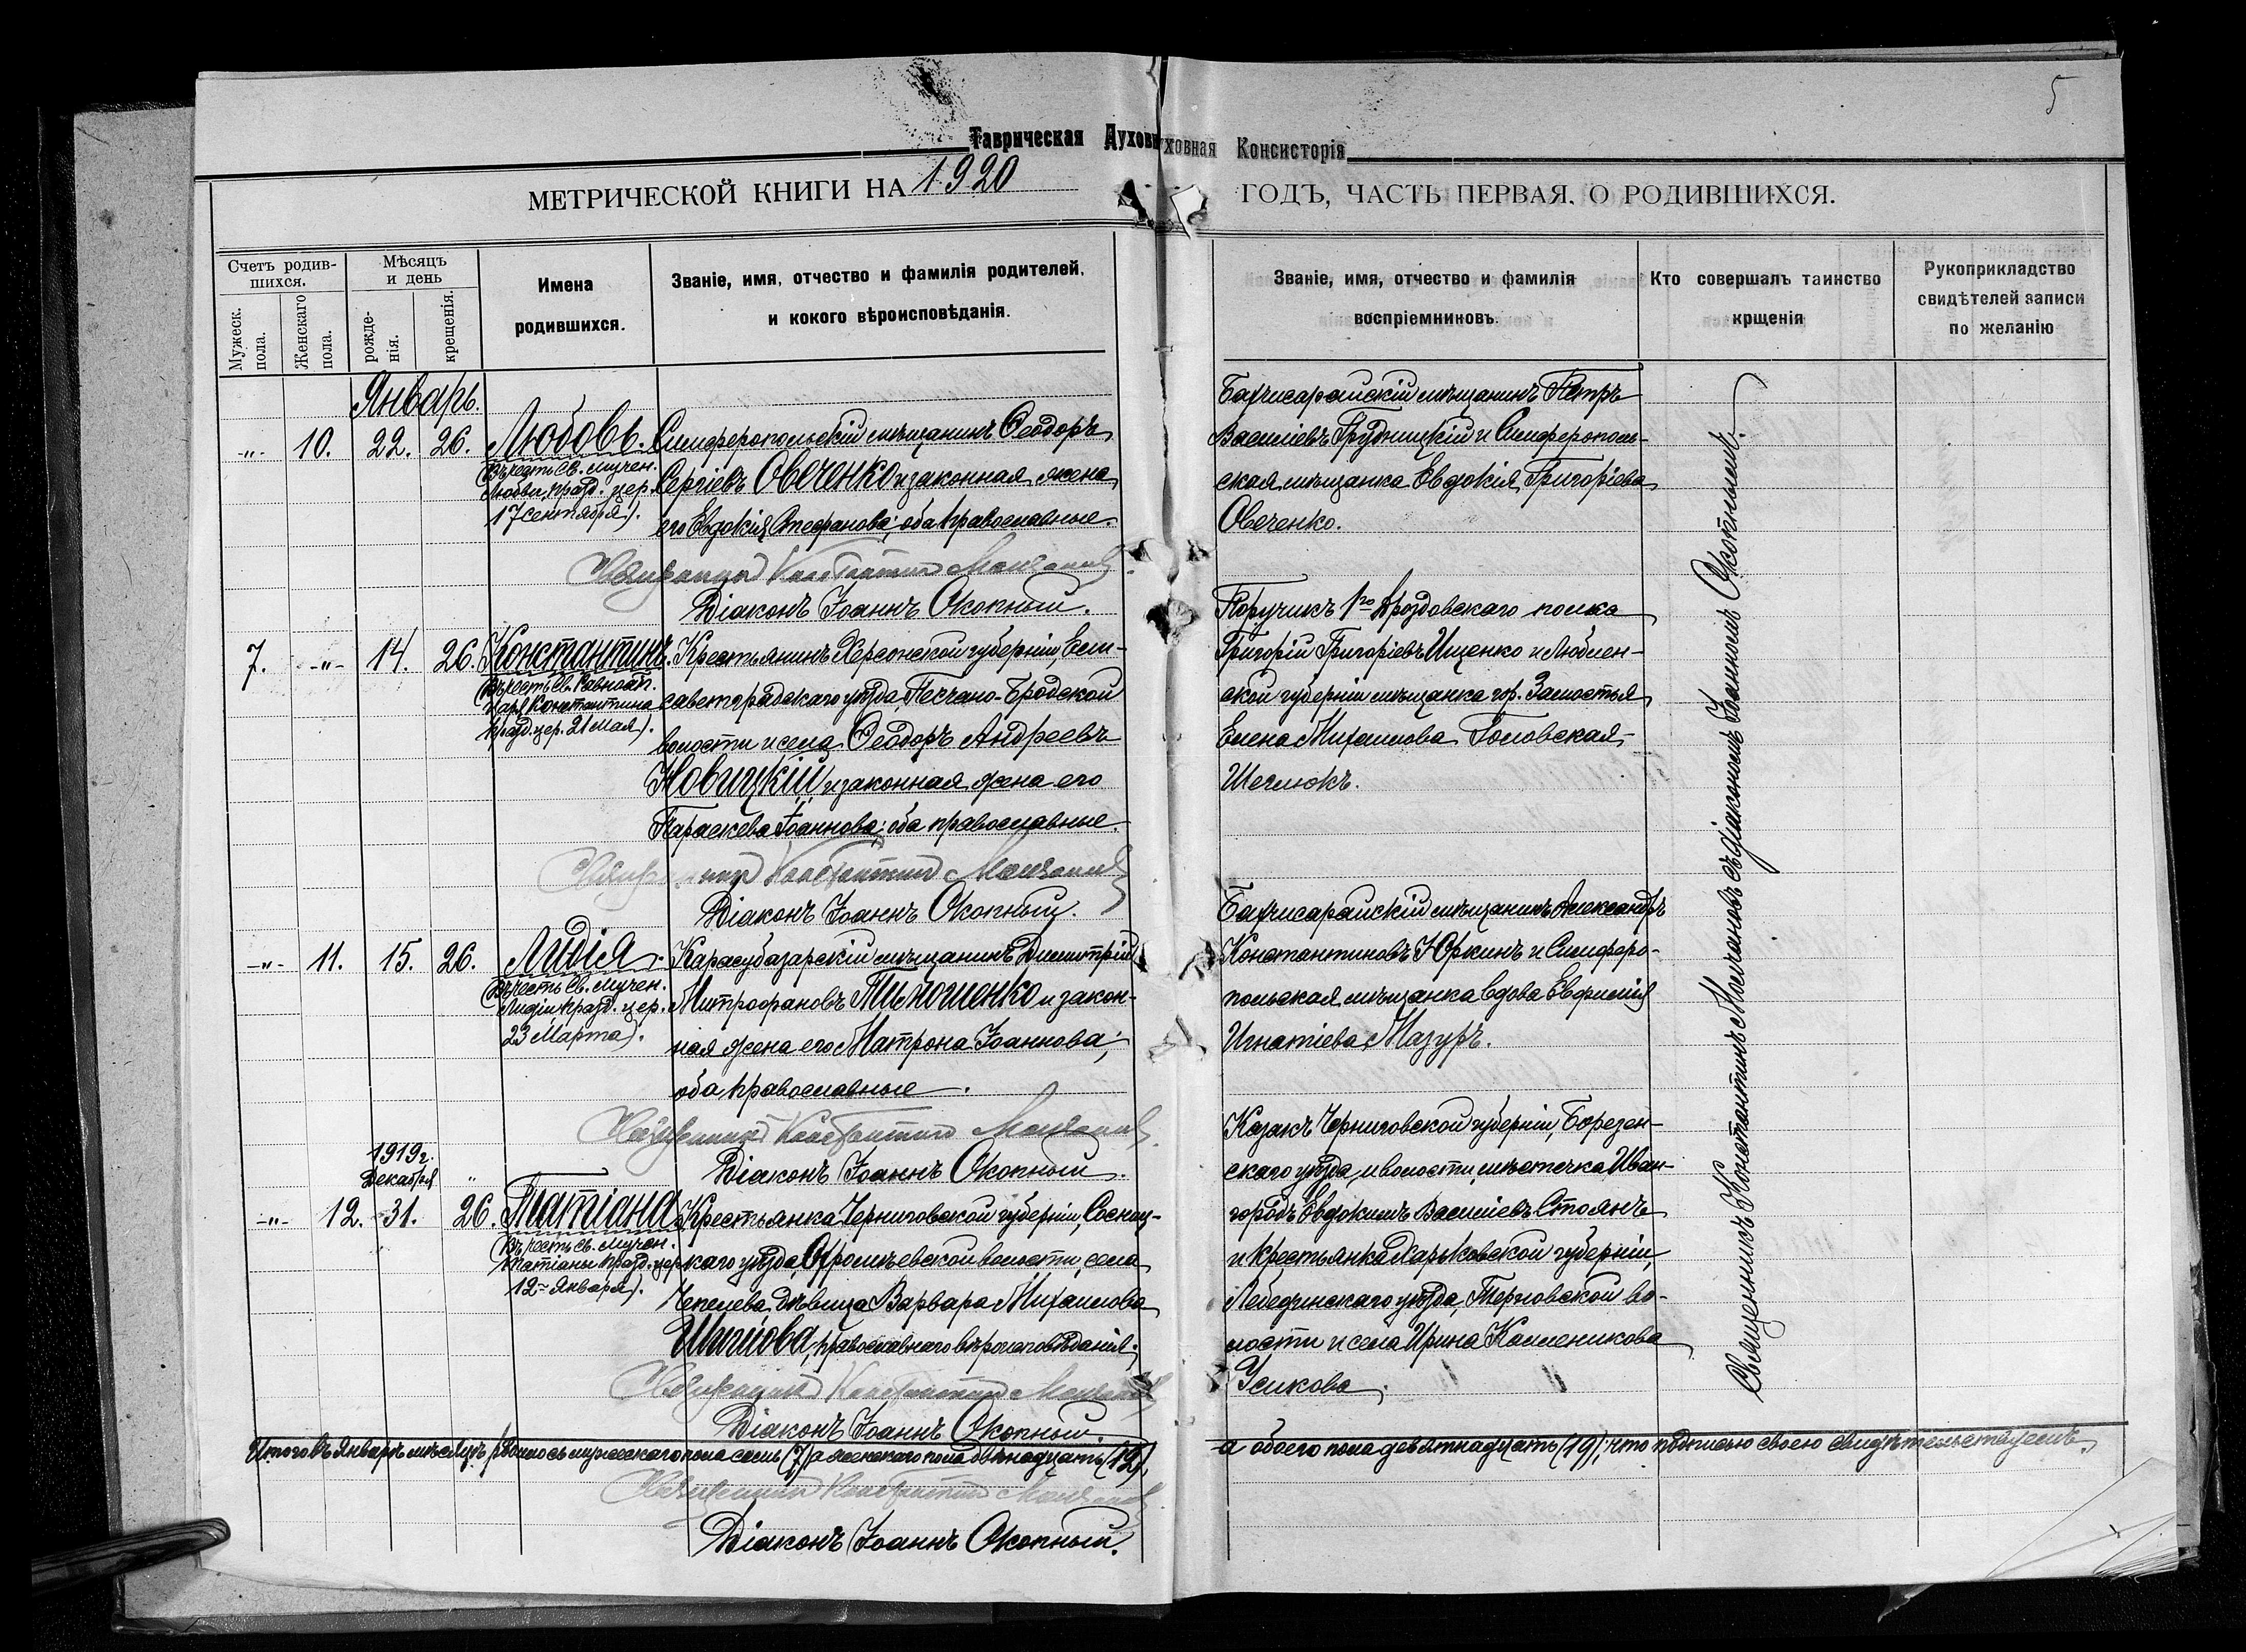 5
Таврическая Духовная Консисторія
МЕТРИЧЕСКОЙ КНИГИ НА 1920 ГОДЪ, ЧАСТЬ ПЕРВАЯ. О РОДИВШИХСЯ.
Счетъ родив-
шихся.
Мужеск.
пола.
Женскаго
пола.
Мѣсяцъ
и день
рожде-
нія.
крещенія.
Имена
родившихся.
Званіе, имя, отчество и фамилія родителей,
и кокого вѣроисповѣданія.
Званіе, имя, отчество и фамилія
воспріемниновъ.
Кто совершалъ таинство
крщенія
Рукоприкладство
свидѣтелей записи
по желанію
Январь.
-"- 10. 22. 26. Любовь.
(Въ честь Св. мучен.
Любви, празд. цер.
17 сентября).
Симферопольскій мѣщанинъ Ѳеодоръ
Сергіевъ Овеченко и законная жена
его Евдокія Стефанова; оба православные.
Священникъ Константинъ Молчановъ.
Діаконъ Іоаннъ Окопный.
Бахчисарайскій мѣщанинъ Петръ
Василіевъ Грудницкій и Симферополь-
ская мѣщанка Евдокія Григоріева
Овеченко.
7. -"- 14. 26. Константинъ.
(Въ честь Св. Равноап.
Царя Константина
празд. цер. 21 мая).
Крестьянинъ Херсонской губерніи, Ели-
саветградскаго уѣзда, Песчано-Бродской
волости и села Ѳеодоръ Андреевъ
Новицкій и законная жена его
Параскева Іоаннова; оба православные.
Священникъ Константинъ Молчановъ
Діаконъ Іоаннъ Окопный.
Поручикъ 1го Дроздовскаго полка
Григорій Григоріевъ Ищенко и Люблин-
ской губерніи мѣщанка гор. Замостья
Елена Михаилова Головская-
Щеглюкъ.
-"- 11. 15. 26. Лидія.
(Въ честь Св. мучен.
Лидіи празд. цер.
23 Марта).
Карасубазарскій мѣщанинъ Димитрій
Митрофановъ Тимошенко и закон-
ная жена его Матрона Іоаннова;
оба православные.
Священникъ Константинъ Молчановъ.
Діаконъ Іоаннъ Окопный.
Бахчисарайскій мѣщанинъ Александръ
Константиновъ Юркинъ и Симферо-
польская мѣщанка вдова Евфимія
Игнатіева Мазуръ.
1919 г.
Декабря "
-"- 12. 31. 26. Татіана
(Въ честь св. мучен.
Татіаны празд. цер.
12 Января).
Крестьянка Черниговской губерніи, Сосниц-
каго уѣзда, волости, села
Чепелева дѣвица Варвара Михаилова
православнаго вѣроисповѣданія.
Священникъ Константинъ Молчановъ
Діаконъ Іоаннъ Окопный.
Казакъ Черниговской губерніи, Борзен-
скаго уѣзда, и волости, мѣстечка Иван-
городъ Евдокимъ Василіевъ Стоянъ
и крестьянка Харьковской губерніи,
Лебединскаго уѣзда, Терновской во-
лости и села Ирина Каленикова
Усикова.
Священникъ Константинъ Молчановъ съ діакономъ Іоанномъ Окопнымъ.
Итого въ Январѣ мѣсяцѣ родилось мужескаго пола семь (7) а женскаго пола двѣнадцать (12),
а обоего пола девятнадцать (19); что подписью своею свидѣтельствуемъ.
Священникъ Константинъ Молчановъ
Діаконъ Іоаннъ Окопный.